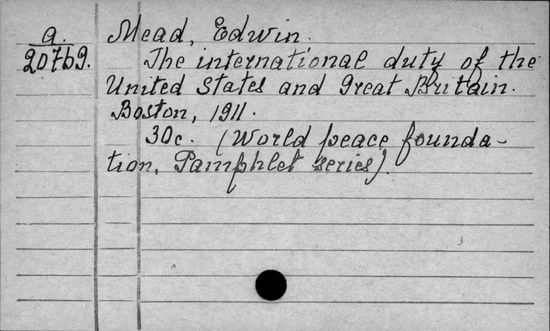 a. Mead, Edwin.
20769. The international duty of the
United States and Great Britain.
Boston, 1911.
30c. (World peace founda-
tion, Pamphlet series).